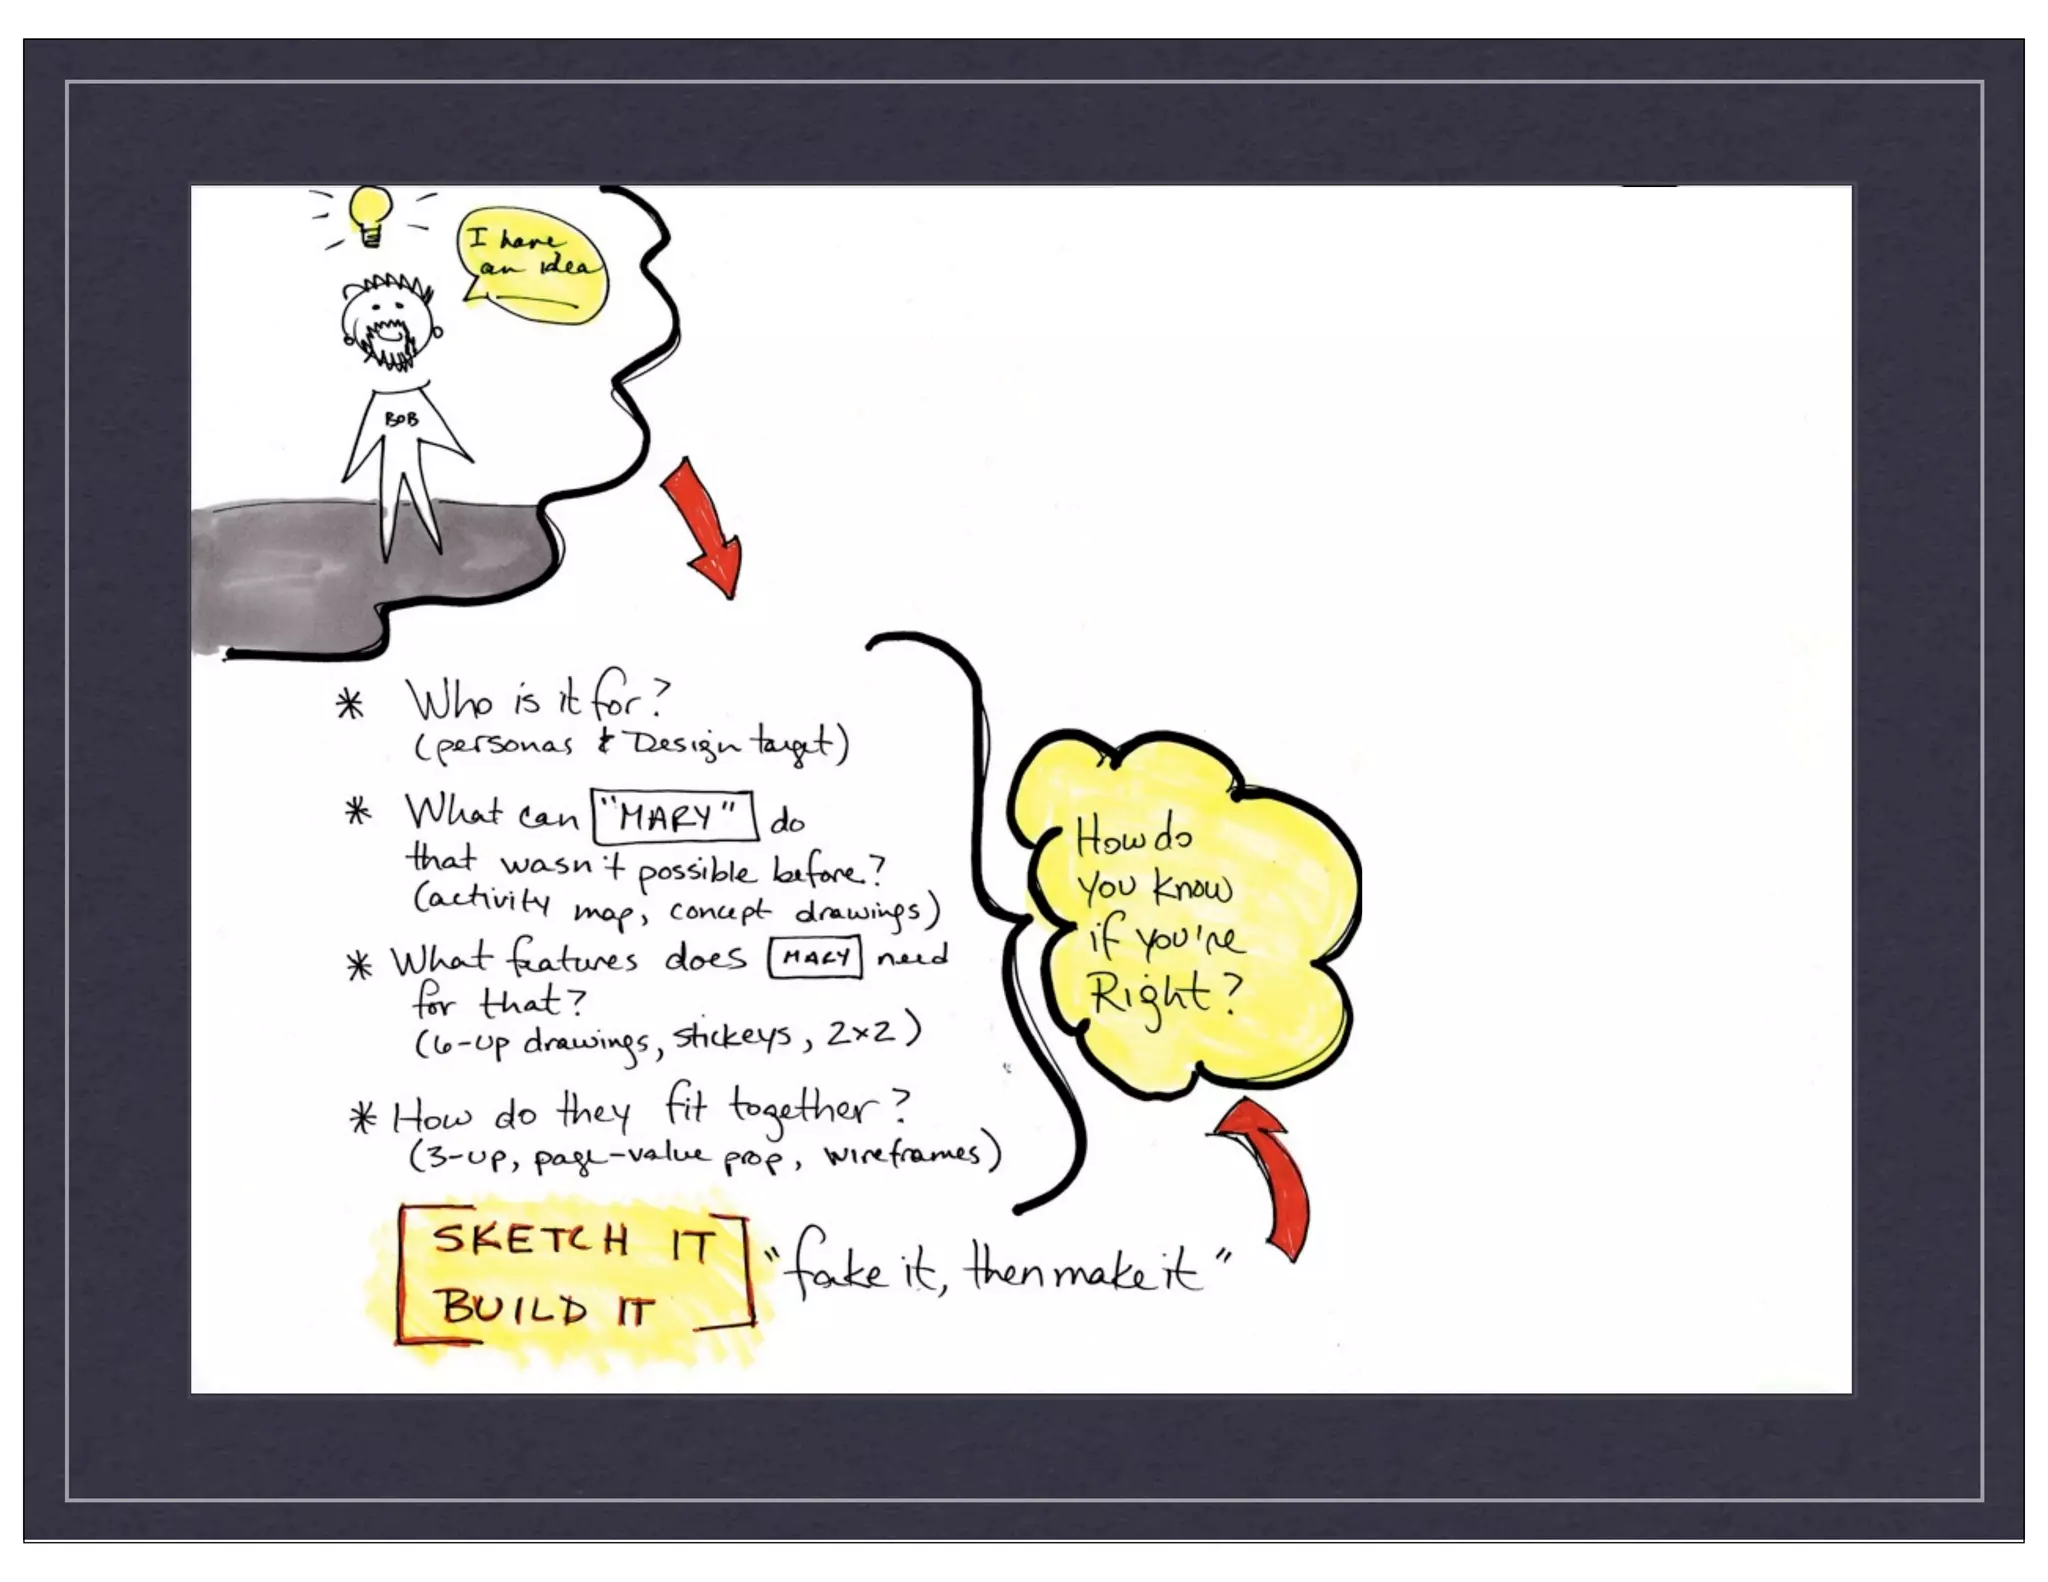 I have
an idea
BOB
* Who is it for?
(personas & Design target)
* What can "MARY" do
that wasn't possible before?
(activity map, concept drawings)
* What features does MARY need
for that?
(6-up drawings, stickeys, 2x2)
* How do they fit together?
(3-up, page-value prop, wireframes)
How do
you know
if you're
Right?
SKETCH IT
BUILD IT
"fake it, then make it"